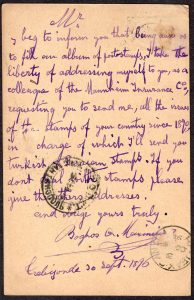 Mr
I beg to inform you that being anxious
to fill our album of poststamps, I take the
liberty of addressing myself to you, as a
colleague of the Mannheim Insurance Co,
requesting you to send me, all the issues
of the stamps of your country since 1890
in charge of which I'll send you
turkish stamps. if you
dont stamps please
give addresses.
and oblige yours truly.
Boghos
30 Sept. 1896